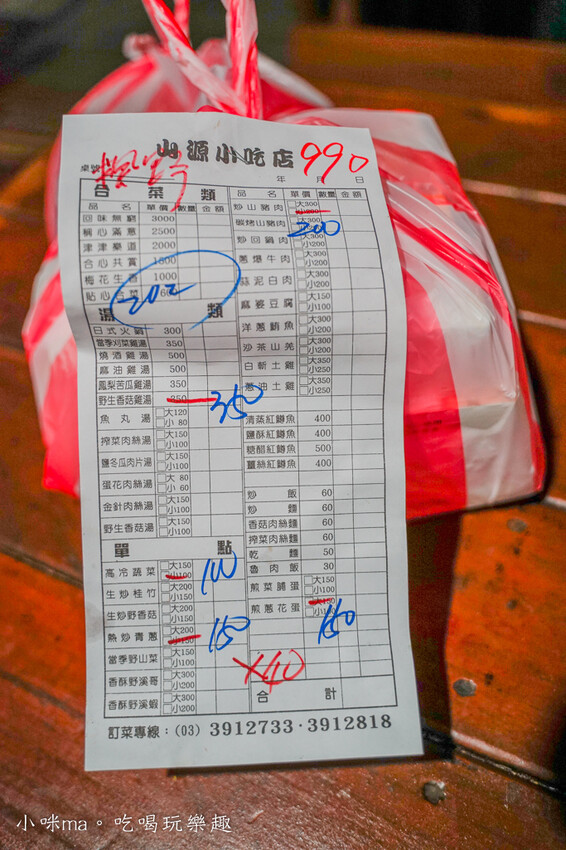 山源小吃店 990
桌號 楓野 年 月 日
合菜類
品名 單價 數量 金額
回味無窮 3000
稱心滿意 2500
津津樂道 2000
合心共賞 1500
梅花生香 1000
貼心合菜 600
202
湯類
日式火鍋 300
當季刈菜雞湯 350
燒酒雞湯 500
麻油雞湯 500
鳳梨苦瓜雞湯 350
野生香菇雞湯 350 350
魚丸湯 大120 小80
榨菜肉絲湯 大150 小100
鹽冬瓜肉片湯 大150 小100
蛋花肉絲湯 大80 小60
金針肉絲湯 大150 小100
野生香菇湯 大150 小100
單點
高冷蔬菜 大150 小100 100
生炒桂竹 大200 小150
生炒野香菇 大200 小150
熱炒青蔥 大200 小150 150
當季野山菜 大150 小100
香酥野溪哥 大300 小200
香酥野溪蝦 大300 小200
品名 單價 數量 金額
炒山豬肉 大300
碳烤山豬肉 大300 200
炒回鍋肉 大300 小200
蔥爆牛肉 大300 小200
蒜泥白肉 大300 小200
麻婆豆腐 大150 小100
洋蔥鯖魚 大300 小200
炒茶山羌 大300 小200
白斬土雞 大500 小250
蔥油土雞 大500 小250
清蒸紅鱒魚 400
鹽酥紅鱒魚 400
糖醋紅鱒魚 500
薑絲紅鱒魚 400
炒飯 60
炒麵 60
香菇肉絲麵 60
榨菜肉絲麵 60
乾麵 50
魯肉飯 30
煎菜脯蛋 大150 小100
煎蔥花蛋 大150 小100 150
×40
合計
訂菜專線:(03) 3912733·3912818
小咪ma。吃喝玩樂趣